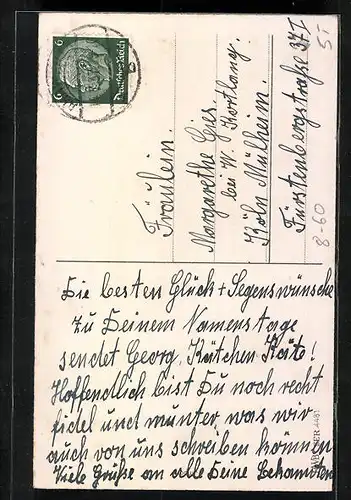 6 6
Deutsches Reich
Fräulein.
Margarethe Gies.
bei W. Kortlang.
Köln Mülheim.
Fürstenbergstraße 37 I
5,-
8-60
Die besten Glück + Segenswünsche
zu Deinem Namenstage
sendet Georg, Kätchen Käte!
Hoffendlich bist Du noch recht
fidel und munter, was wir
auch von uns schreiben können
Viele Grüße an alle Deine Bekannten